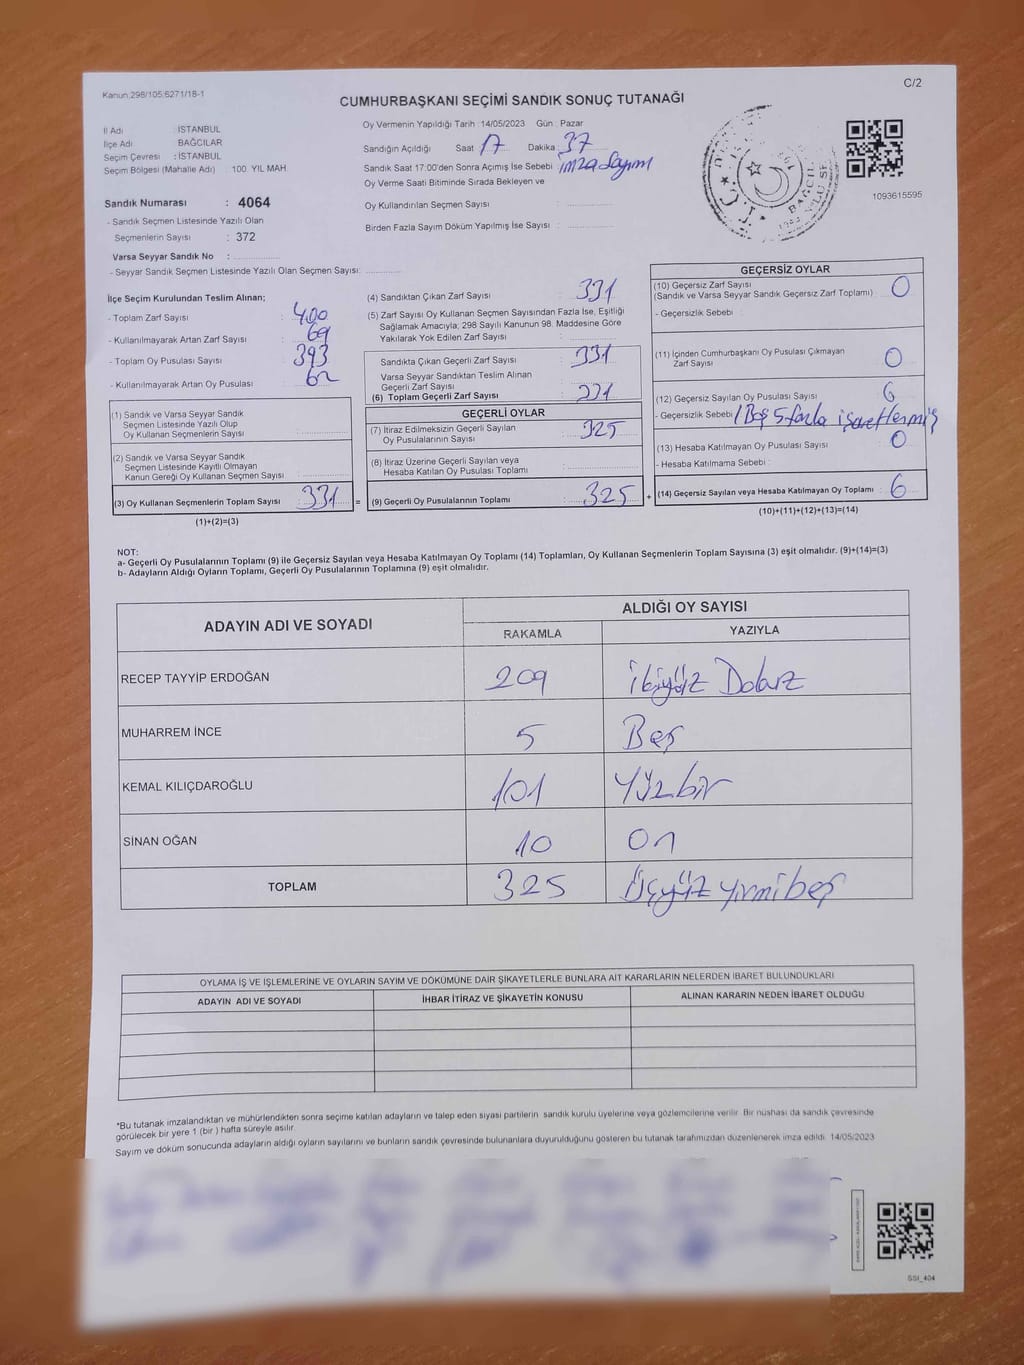 C/2
Kanun:298/105,6271/18-1
CUMHURBAŞKANI SEÇİMİ SANDIK SONUÇ TUTANAĞI
İl Adı : İSTANBUL
İlçe Adı BAĞCILAR
Seçim Çevresi : İSTANBUL
Seçim Bölgesi (Mahalle Adı) : 100. YIL MAH.
Sandık Numarası : 4064
- Sandık Seçmen Listesinde Yazılı Olan
Seçmenlerin Sayısı : 372
Varsa Seyyar Sandık No :
- Seyyar Sandık Seçmen Listesinde Yazılı Olan Seçmen Sayısı:
Oy Vermenin Yapıldığı Tarih :14/05/2023 Gün : Pazar
Sandığın Açıldığı Saat 17 Dakika : 37
Sandık Saat 17:00'den Sonra Açımış İse Sebebi imza Sayım
Oy Verme Saati Bitiminde Sırada Bekleyen ve
Oy Kullandırılan Seçmen Sayısı :
Birden Fazla Sayım Döküm Yapılmış İse Sayısı :
1093615595
İlçe Seçim Kurulundan Teslim Alınan;
- Toplam Zarf Sayısı : 400
- Kullanılmayarak Artan Zarf Sayısı : 69
- Toplam Oy Pusulası Sayısı : 393
- Kullanılmayarak Artan Oy Pusulası : 62
(1) Sandık ve Varsa Seyyar Sandık
Seçmen Listesinde Yazılı Olup
Oy Kullanan Seçmenlerin Sayısı :
(2) Sandık ve Varsa Seyyar Sandık
Seçmen Listesinde Kayıtlı Olmayan
Kanun Gereği Oy Kullanan Seçmen Sayısı :
(3) Oy Kullanan Seçmenlerin Toplam Sayısı : 331 =
(1)+(2)=(3)
(4) Sandıktan Çıkan Zarf Sayısı : 331
(5) Zarf Sayısı Oy Kullanan Seçmen Sayısından Fazla İse, Eşitliği
Sağlamak Amacıyla; 298 Sayılı Kanunun 98. Maddesine Göre
Yakılarak Yok Edilen Zarf Sayısı :
Sandıkta Çıkan Geçerli Zarf Sayısı : 331
Varsa Seyyar Sandıktan Teslim Alınan
Geçerli Zarf Sayısı :
(6) Toplam Geçerli Zarf Sayısı : 331
GEÇERLİ OYLAR
(7) İtiraz Edilmeksizin Geçerli Sayılan
Oy Pusulalarının Sayısı : 325
(8) İtiraz Üzerine Geçerli Sayılan veya
Hesaba Katılan Oy Pusulası Toplamı :
(9) Geçerli Oy Pusulalarının Toplamı : 325 +
GEÇERSİZ OYLAR
(10) Geçersiz Zarf Sayısı
(Sandık ve Varsa Seyyar Sandık Geçersiz Zarf Toplamı) : 0
- Geçersizlik Sebebi :
(11) İçinden Cumhurbaşkanı Oy Pusulası Çıkmayan
Zarf Sayısı : 0
(12) Geçersiz Sayılan Oy Pusulası Sayısı : 6
- Geçersizlik Sebebi : 1 Boş 5 fazla işaretlenmiş
(13) Hesaba Katılmayan Oy Pusulası Sayısı : 0
- Hesaba Katılmama Sebebi :
(14) Geçersiz Sayılan veya Hesaba Katılmayan Oy Toplamı : 6
(10)+(11)+(12)+(13)=(14)
NOT:
a- Geçerli Oy Pusulalarının Toplamı (9) ile Geçersiz Sayılan veya Hesaba Katılmayan Oy Toplamı (14) Toplamları, Oy Kullanan Seçmenlerin Toplam Sayısına (3) eşit olmalıdır. (9)+(14)=(3)
b- Adayların Aldığı Oyların Toplamı, Geçerli Oy Pusulalarının Toplamına (9) eşit olmalıdır.
ADAYIN ADI VE SOYADI ALDIĞI OY SAYISI
RAKAMLA YAZIYLA
RECEP TAYYİP ERDOĞAN 209 ikiyüz Dokuz
MUHARREM İNCE 5 Beş
KEMAL KILIÇDAROĞLU 101 Yüzbir
SİNAN OĞAN 10 On
TOPLAM 325 Üçyüz yirmibeş
OYLAMA İŞ VE İŞLEMLERİNE VE OYLARIN SAYIM VE DÖKÜMÜNE DAİR ŞİKAYETLERLE BUNLARA AİT KARARLARIN NELERDEN İBARET BULUNDUKLARI
ADAYIN ADI VE SOYADI İHBAR İTİRAZ VE ŞİKAYETİN KONUSU ALINAN KARARIN NEDEN İBARET OLDUĞU
*Bu tutanak imzalandıktan ve mühürlendikten sonra seçime katılan adayların ve talep eden siyasi partilerin sandık kurulu üyelerine veya gözlemcilerine verilir. Bir nüshası da sandık çevresinde
görülecek bir yere 1 (bir ) hafta süreyle asılır.
Sayım ve döküm sonucunda adayların aldığı oyların sayılarını ve bunların sandık çevresinde bulunanlara duyurulduğunu gösteren bu tutanak tarafımızdan düzenlenerek imza edildi. 14/05/2023
SSI_404